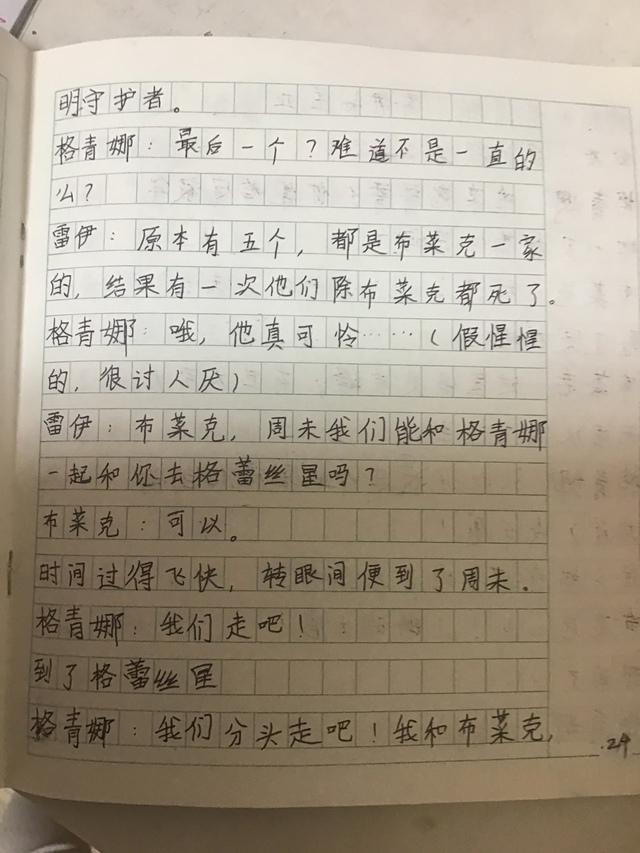 明守护者。
格青娜：最后一个？难道不是一直的
么？
雷伊：原本有五个，都是布莱克一家
的，结果有一次他们除布莱克都死了。
格青娜：哦，他真可怜……（假惺惺
的，很讨人厌）
雷伊：布莱克，周未我们能和格青娜
一起和你去格蕾丝星吗？
布莱克：可以。
时间过得飞快，转眼间便到了周未．
格青娜：我们走吧！
到了格蕾丝星
格青娜：我们分头走吧！我和布莱克，
24